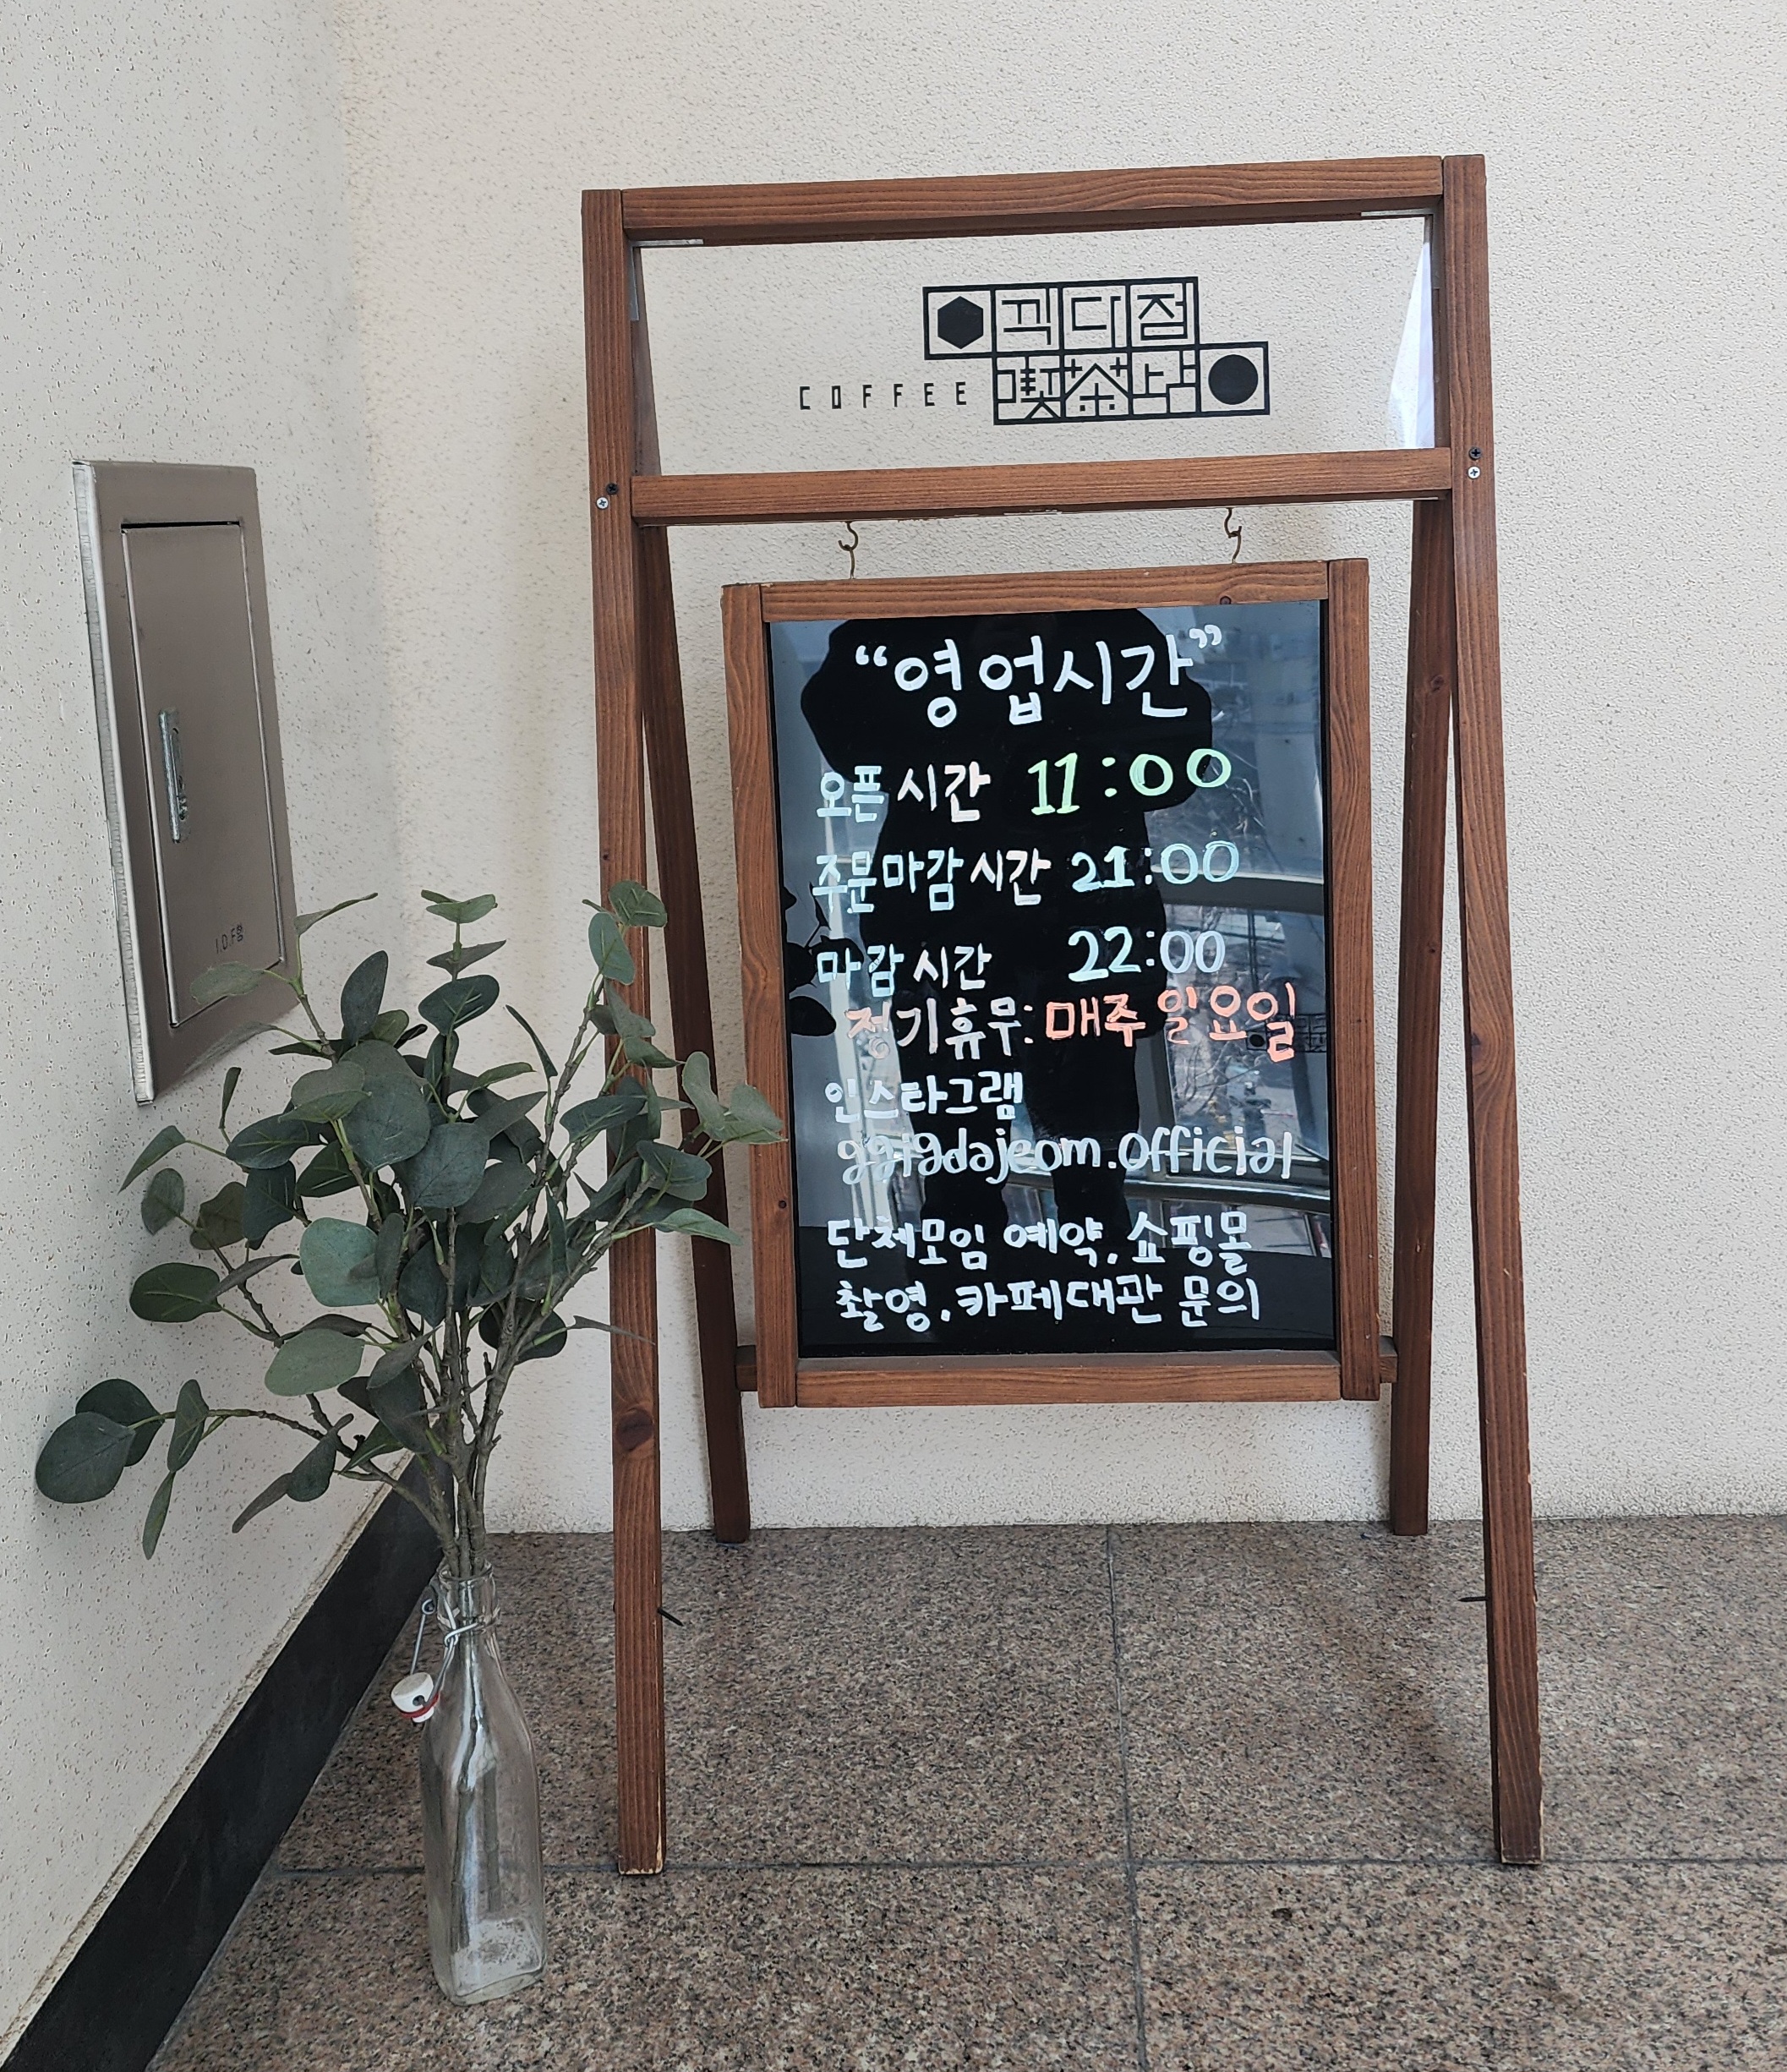 끽다점
COFFEE 喫茶占
"영업시간"
오픈시간 11:00
주문마감시간 21:00
마감시간 22:00
정기휴무: 매주 일요일
인스타그램
ggigdajeom.official
단체모임 예약, 쇼핑몰
촬영, 카페대관 문의